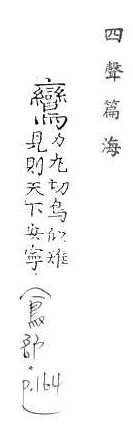 四聲篇海
鸞 力丸切鳥似雉
見則天下安寧.
(鳥部.p.164)